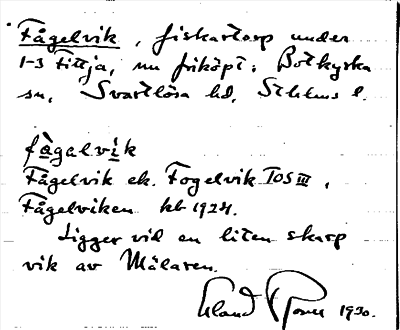 Fågelvik, fiskartorp under
1-3 Fittja, nu friköpt. Botkyrka
sn, Svartlösa hd, Sthlms l.
fågalvik
Fågelvik ek. Fogelvik JOS III,
Fågelviken kb 1924.
Ligger vid en liten skarp
vik av Mälaren.
Erland Rosell 1930.